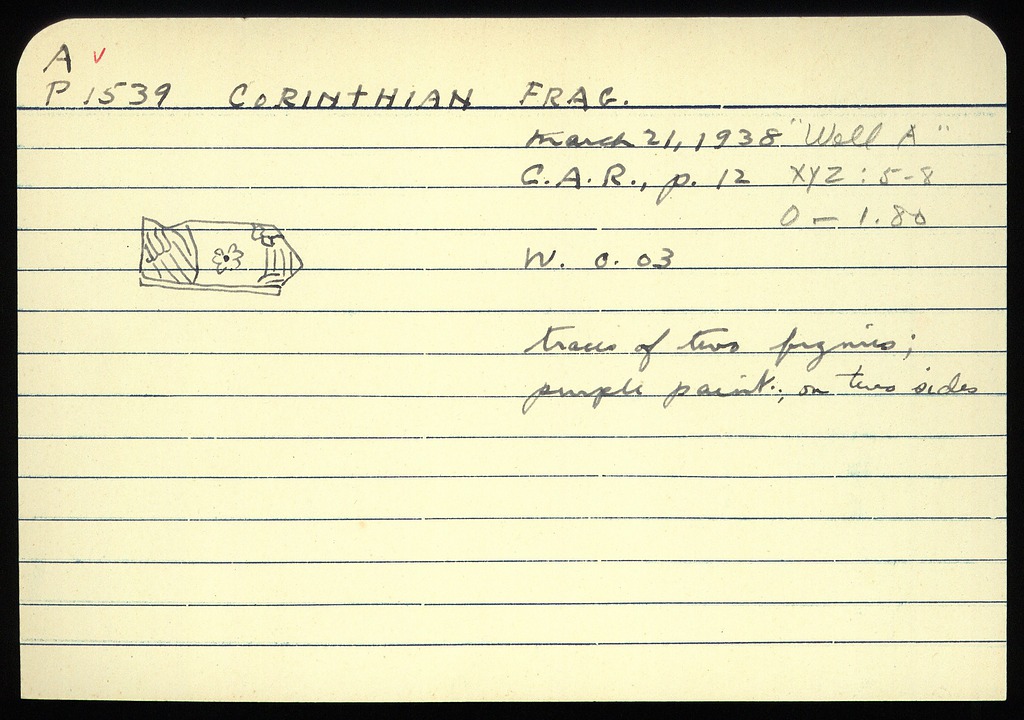 A ✓
P 1539 CORINTHIAN FRAG.
March 21, 1938 "Well A"
C.A.R., p. 12 XYZ : 5-8
0 — 1.80
W. 0.03
traces of two figures;
purple paint; on two sides